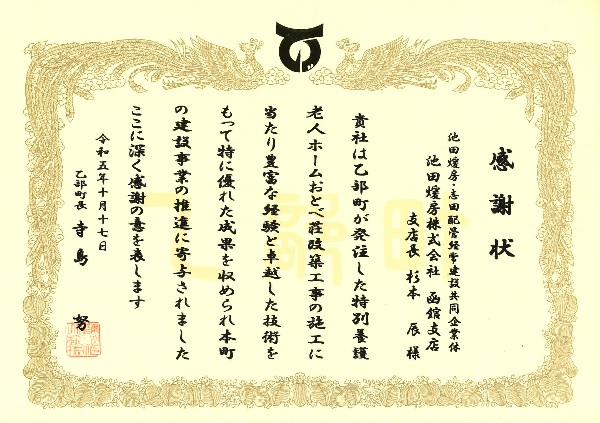 感謝状
池田煖房・志田配管経常建設共同企業体
池田煖房株式会社 函館支店
支店長 杉本 辰 様
貴社は乙部町が発注した特別養護
老人ホームおとべ荘改築工事の施工に
当たり豊富な経験と卓越した技術を
もって特に優れた成果を収められ本町
の建設事業の推進に寄与されました
ここに深く感謝の意を表します
令和五年十月十七日
乙部町長 寺島 努
乙部町